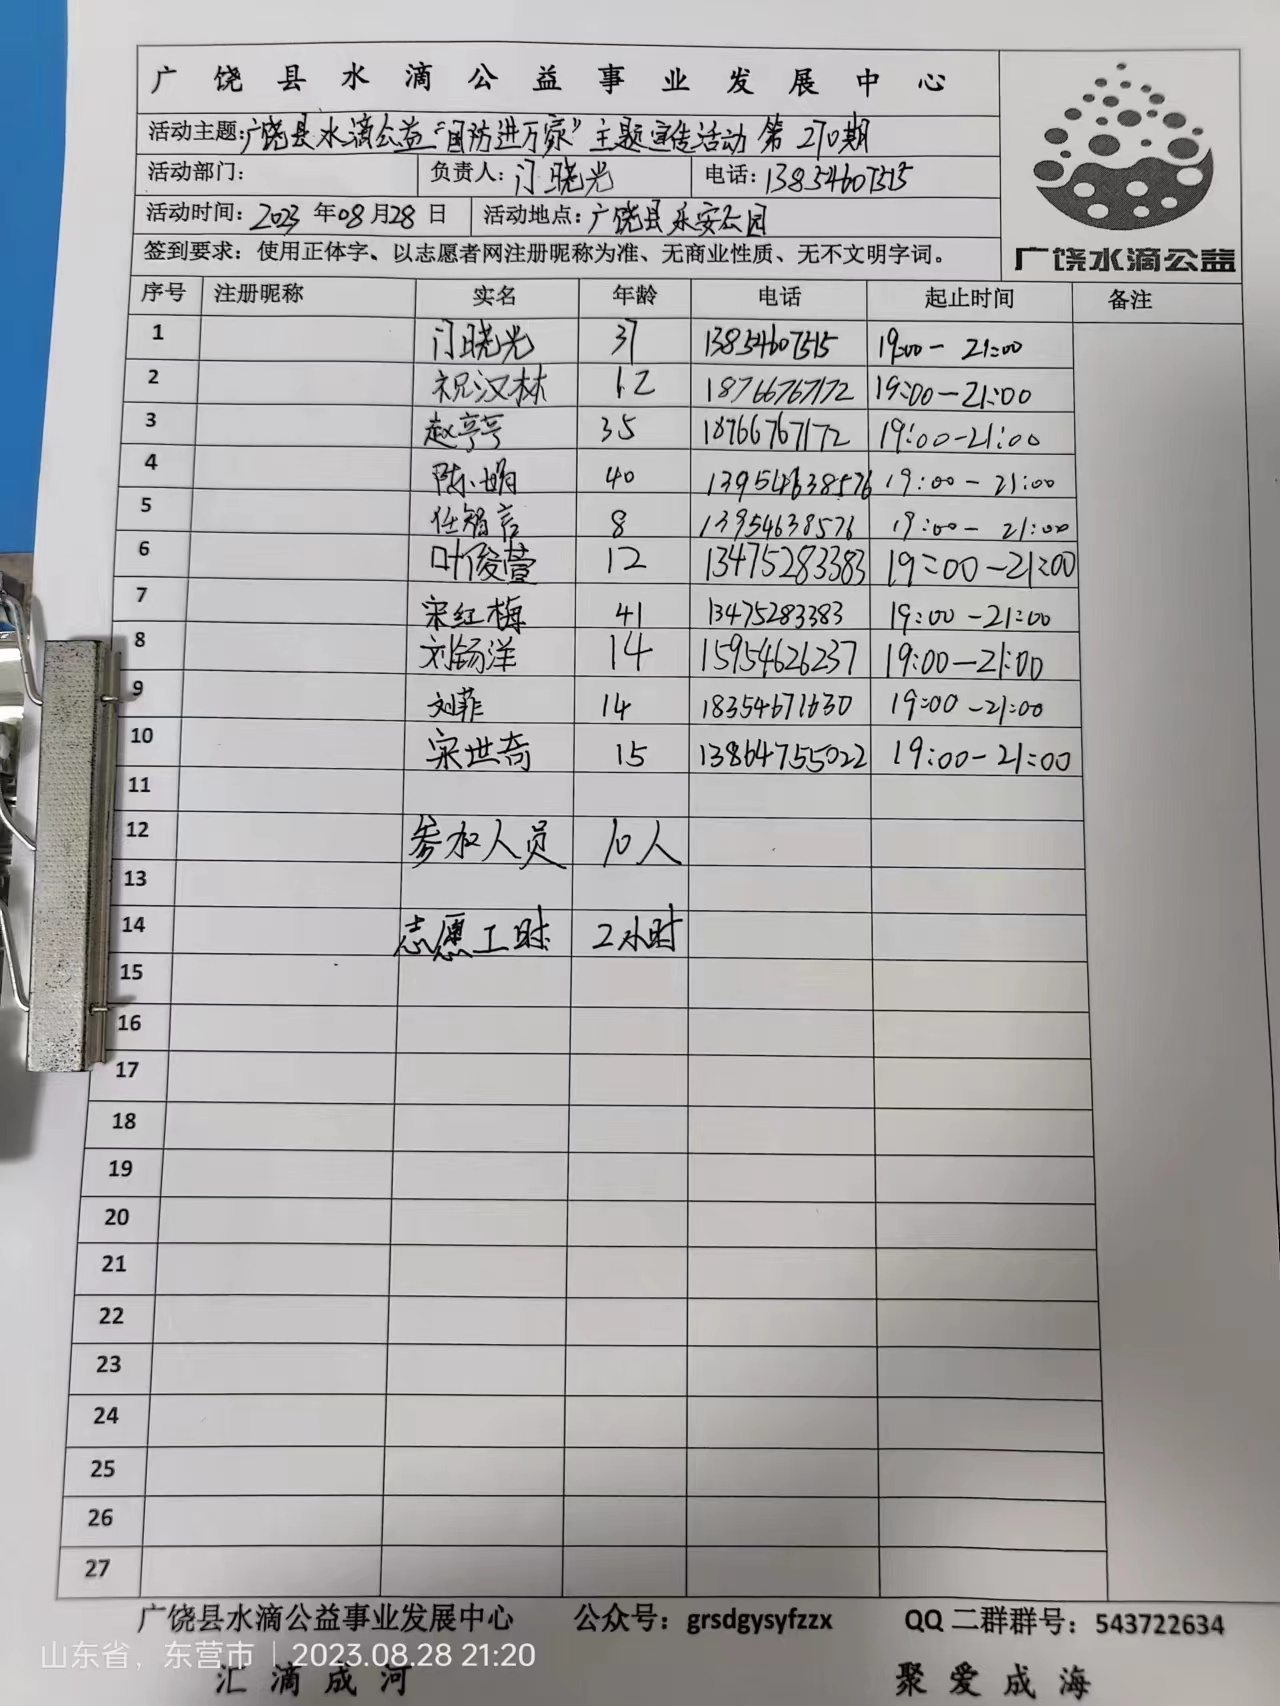 广饶县水滴公益事业发展中心
活动主题:广饶县水滴公益“国防进万家”主题宣传活动 第270期
活动部门: 负责人:门晓光 电话:13854607515
活动时间:2023年08月28日 活动地点:广饶县乐安公园
签到要求：使用正体字、以志愿者网注册昵称为准、无商业性质、无不文明字词。
广饶水滴公益
序号 注册昵称 实名 年龄 电话 起止时间 备注
1 门晓光 37 13854607515 19:00-21:00
2 祝汉林 12 18766767172 19:00-21:00
3 赵亭亭 35 18766767172 19:00-21:00
4 陈娟 40 13954638576 19:00-21:00
5 任智言 8 13954638576 19:00-21:00
6 叶俊萱 12 13475283383 19:00-21:00
7 宋红梅 41 13475283383 19:00-21:00
8 刘钖洋 14 15954626237 19:00-21:00
9 刘菲 14 18354671630 19:00-21:00
10 宋世奇 15 13864755022 19:00-21:00
11
12 参加人员 10人
13
14 志愿工时 2小时
15
16
17
18
19
20
21
22
23
24
25
26
27
广饶县水滴公益事业发展中心 公众号：grsdgysyfzzx QQ 二群群号：543722634
山东省，东营市 | 2023.08.28 21:20
汇滴成河 聚爱成海